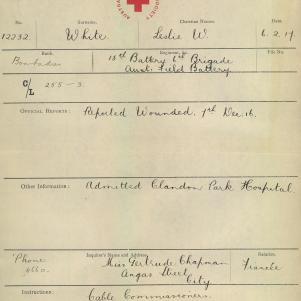 AUSTR
SOCIETY
No. Surname. Christian Names.
12232. White Leslie W. 6.2.17.
Rank. Regiment, &c. File No.
Bombadier 15th Battery 6th Brigade
Aust. Field Battery
C/L 255-3.
OFFICIAL REPORTS: Reported Wounded. 1st Dec. 16.
Other Information: Admitted Clandon Park Hospital.
'Phone Inquirer's Name and Address. Relation.
4660. Miss Gertrude Chapman Fiancée
Angas Street
City
Instructions: Cable Commissioners.